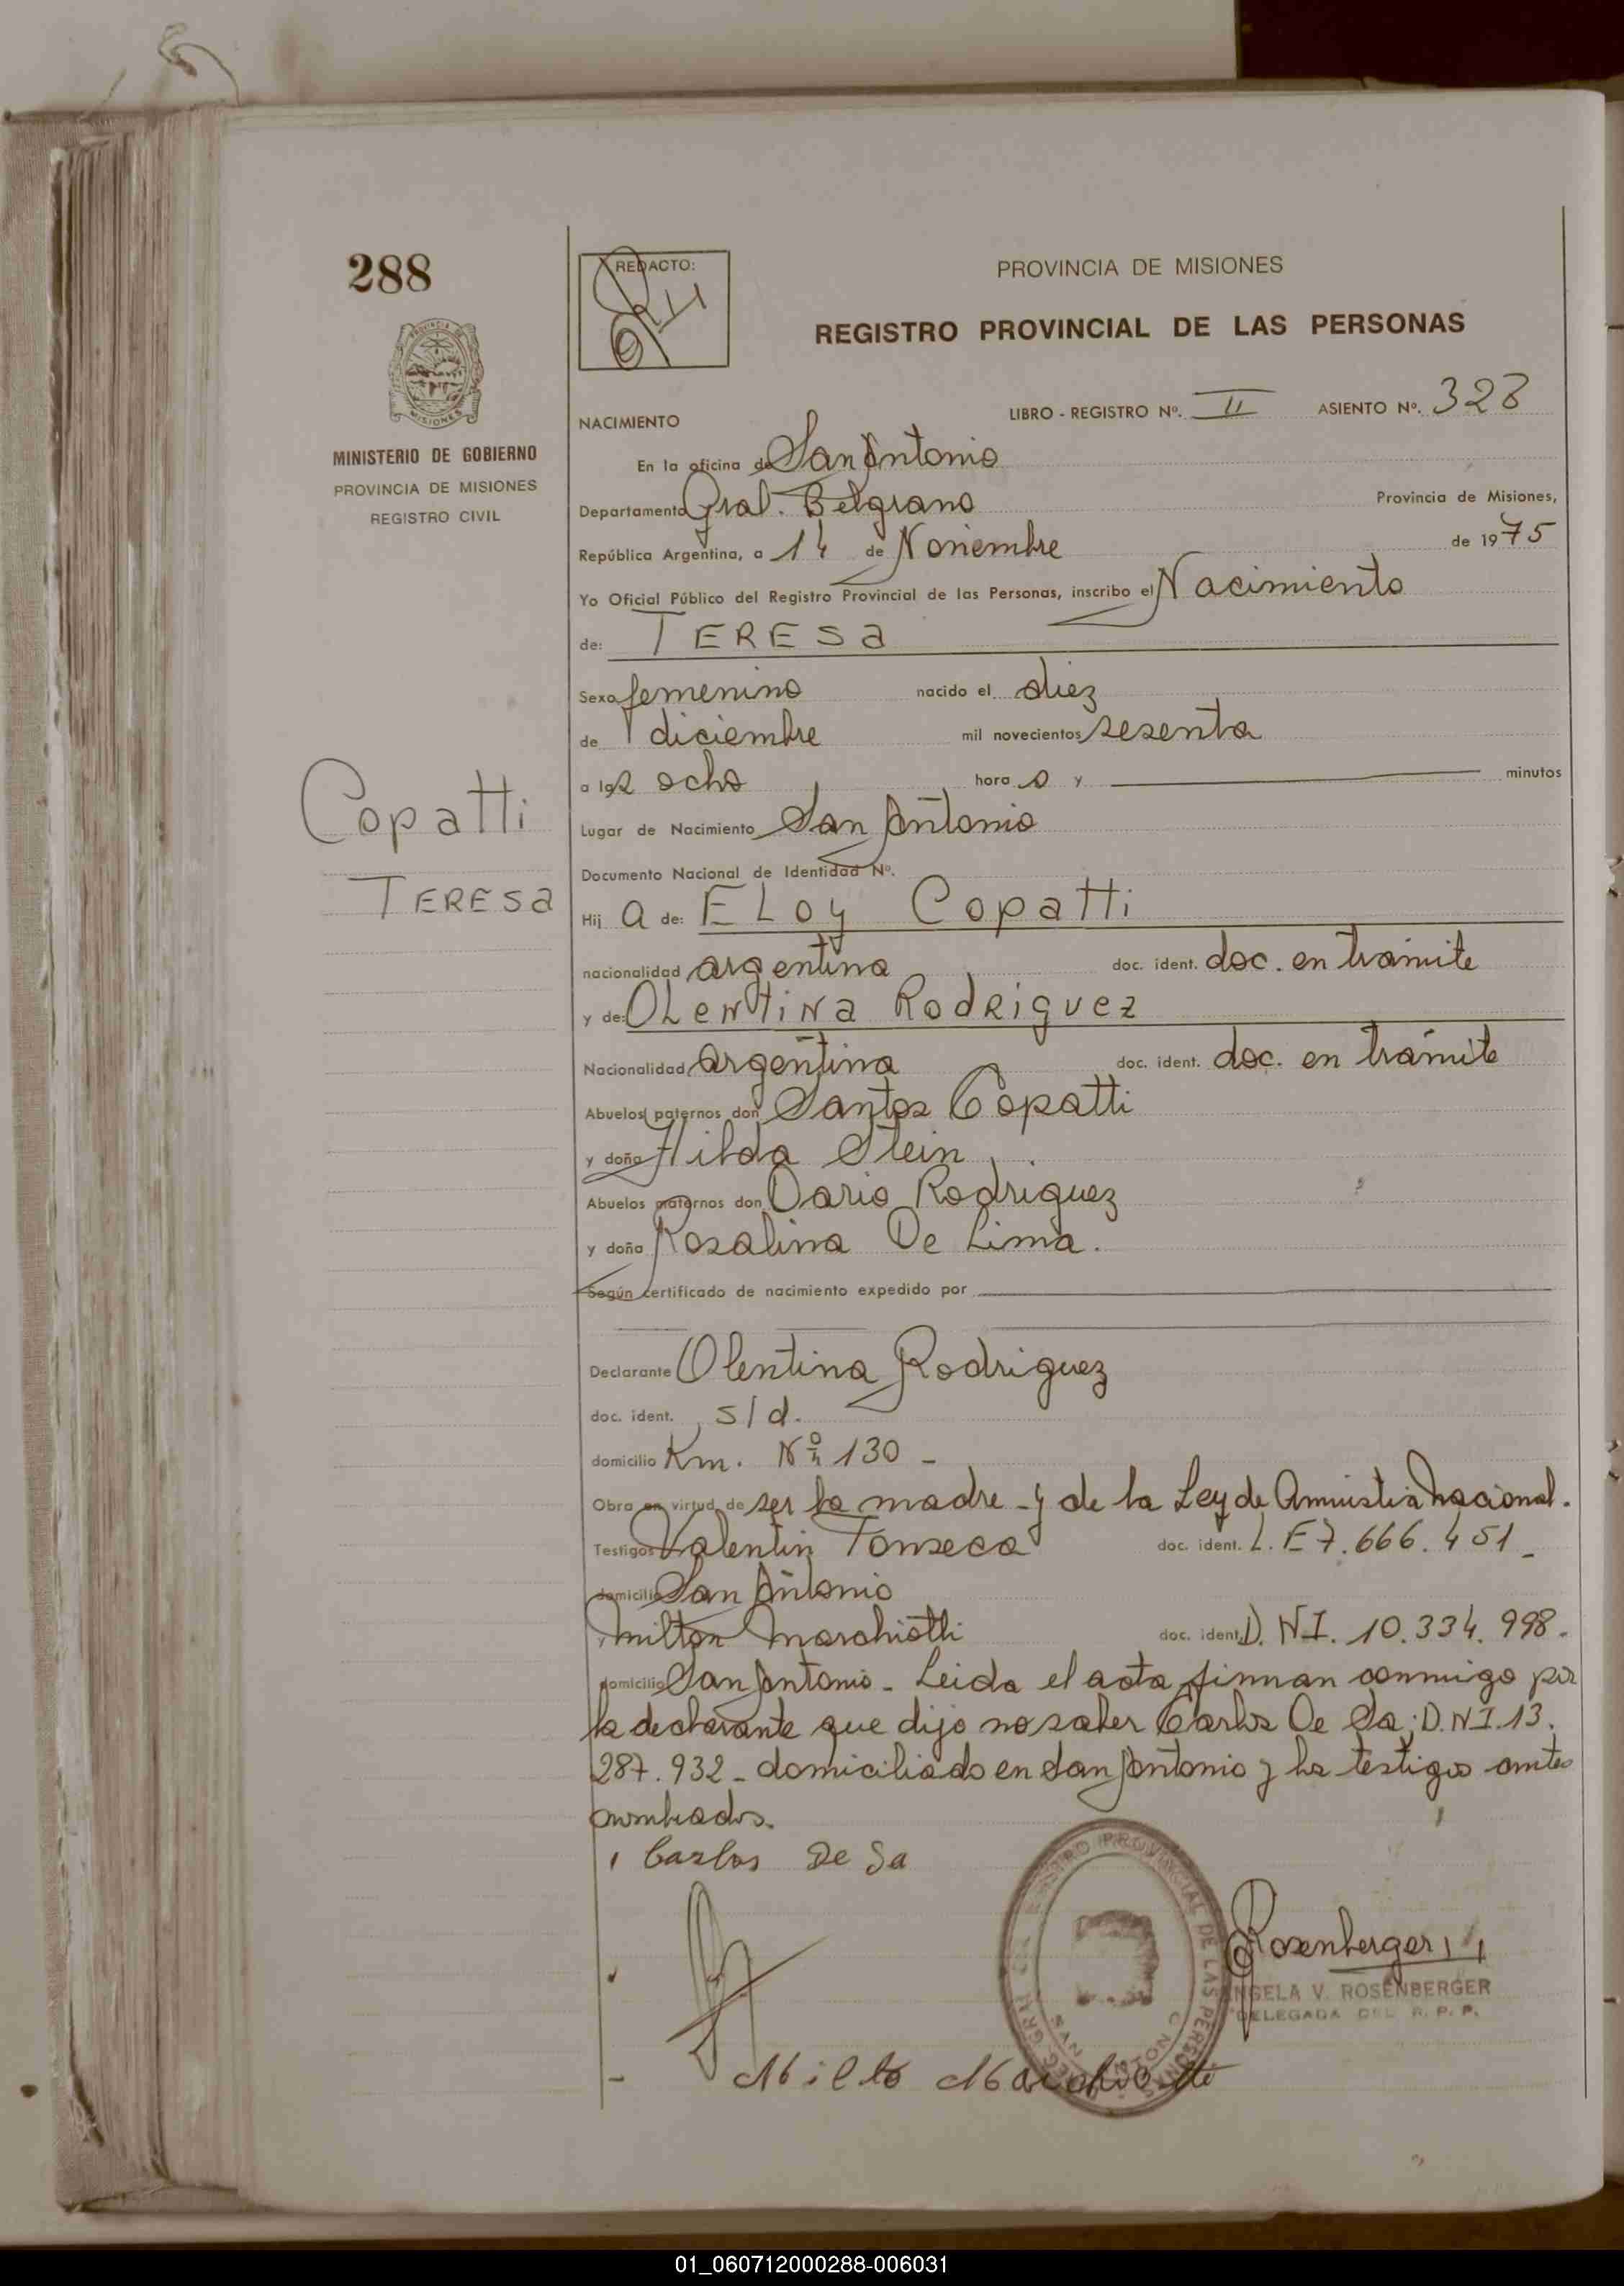 288
REDACTO:
PROVINCIA DE MISIONES
REGISTRO PROVINCIAL DE LAS PERSONAS
MINISTERIO DE GOBIERNO
PROVINCIA DE MISIONES
REGISTRO CIVIL
LIBRO - REGISTRO Nº. II ASIENTO Nº. 328
NACIMIENTO
En la oficina de San Antonio
Departamento Gral. Belgrano Provincia de Misiones,
República Argentina, a 14 de Noviembre de 1975
Yo Oficial Público del Registro Provincial de las Personas, inscribo el Nacimiento
de: TERESa
Sexo femenino nacido el diez
de diciembre mil novecientos sesenta
a las ocho hora s y minutos
Copatti
TERESa
Lugar de Nacimiento San Antonio
Documento Nacional de Identidad Nº.
Hij a de: ELoy Copatti
nacionalidad argentina doc. ident. doc. en trámite
y de: OLentina Rodriguez
Nacionalidad argentina doc. ident. doc. en trámite
Abuelos paternos don Santos Copatti
y doña Hilda Stein
Abuelos maternos don Dario Rodriguez
y doña Rosalina De Lima.
Según certificado de nacimiento expedido por
Declarante Olentina Rodriguez
doc. ident. s/d.
domicilio Km. Nº 130 -
Obra en virtud de ser la madre - y de la Ley de Amnistia Nacional.
Testigos Valentin Fonseca doc. ident. L. E 7.666.451 -
domicilio San Antonio
y Milton Marchiotti doc. ident. D. N I. 10.334.998.
domicilio San Antonio - Leida el acta firman conmigo por
la declarante que dijo no saber Carlos De Sa; D.N I. 13.
287.932 - domiciliado en San Antonio y los testigos antes
nombrados.
Carlos De Sa
REGISTRO PROVINCIAL DE LAS PERSONAS
Rosenberger
ANGELA V. ROSENBERGER
DELEGADA DEL R. P. P.
Milto Marchiotti
01_060712000288-006031